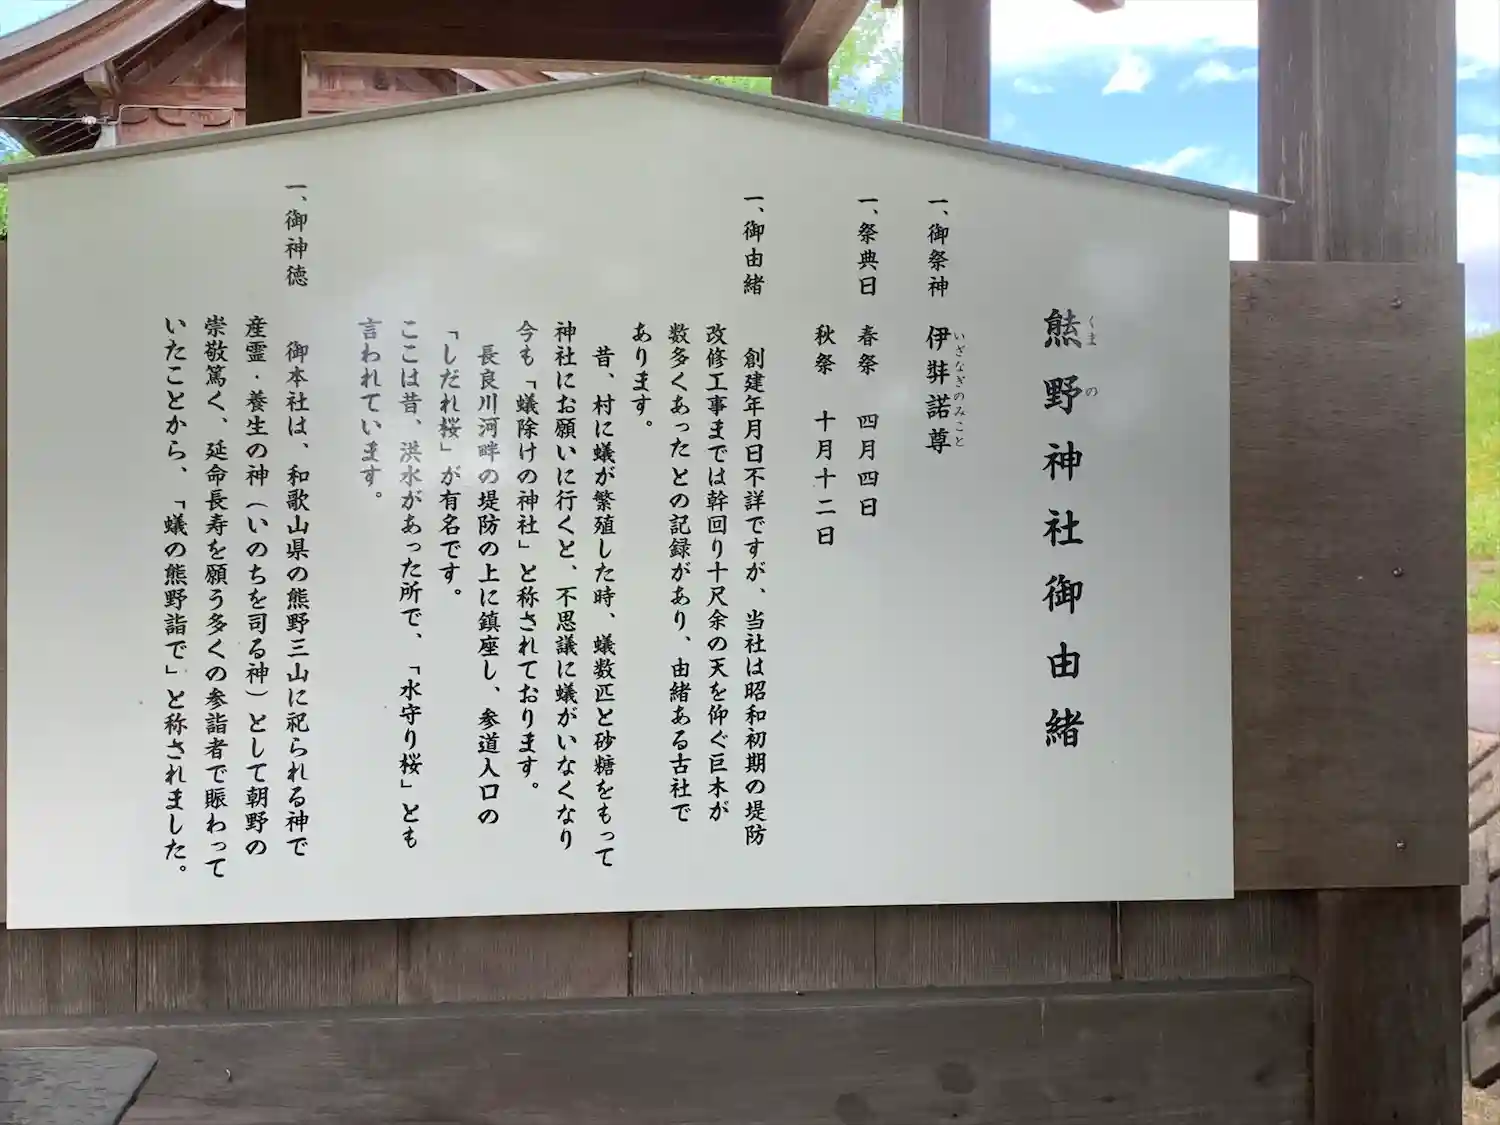 熊野神社御由緒
くまの
一、御祭神　伊弉諾尊
いざなぎのみこと
一、祭典日　春祭　四月四日
秋祭　十月十二日
一、御由緒　創建年月日不詳ですが、当社は昭和初期の堤防
改修工事までは幹回り十尺余の天を仰ぐ巨木が
数多くあったとの記録があり、由緒ある古社で
あります。
昔、村に蟻が繁殖した時、蟻数匹と砂糖をもって
神社にお願いに行くと、不思議に蟻がいなくなり
今も「蟻除けの神社」と称されております。
長良川河畔の堤防の上に鎮座し、参道入口の
「しだれ桜」が有名です。
ここは昔、洪水があった所で、「水守り桜」とも
言われています。
一、御神徳　御本社は、和歌山県の熊野三山に祀られる神で
産霊・養生の神（いのちを司る神）として朝野の
崇敬篤く、延命長寿を願う多くの参詣者で賑わって
いたことから、「蟻の熊野詣で」と称されました。